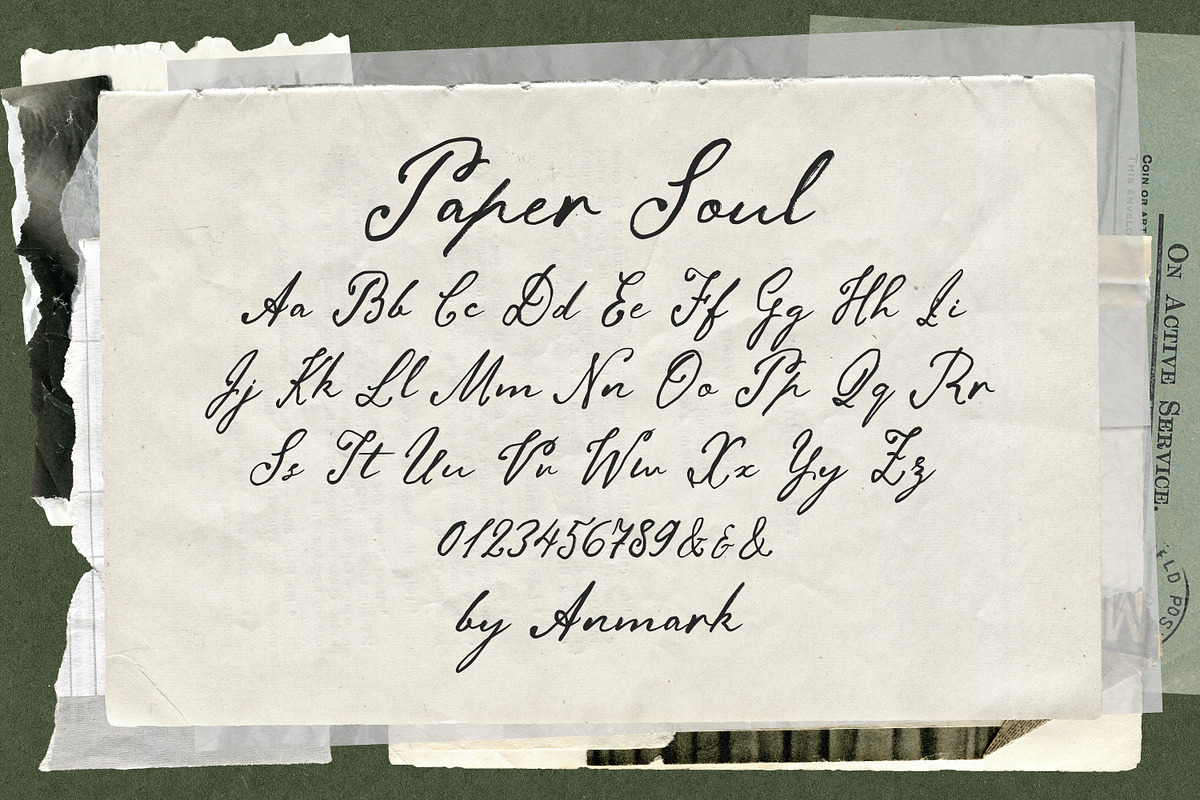 Paper Soul
Aa Bb Cc Dd Ee Ff Gg Hh Ii
Jj Kk Ll Mm Nn Oo Pp Qq Rr
Ss Tt Uu Vv Ww Xx Yy Zz
0123456789&&&
by Anmark
COIN OR ART
THIS ENVELO
ON ACTIVE SERVICE.
LD POS